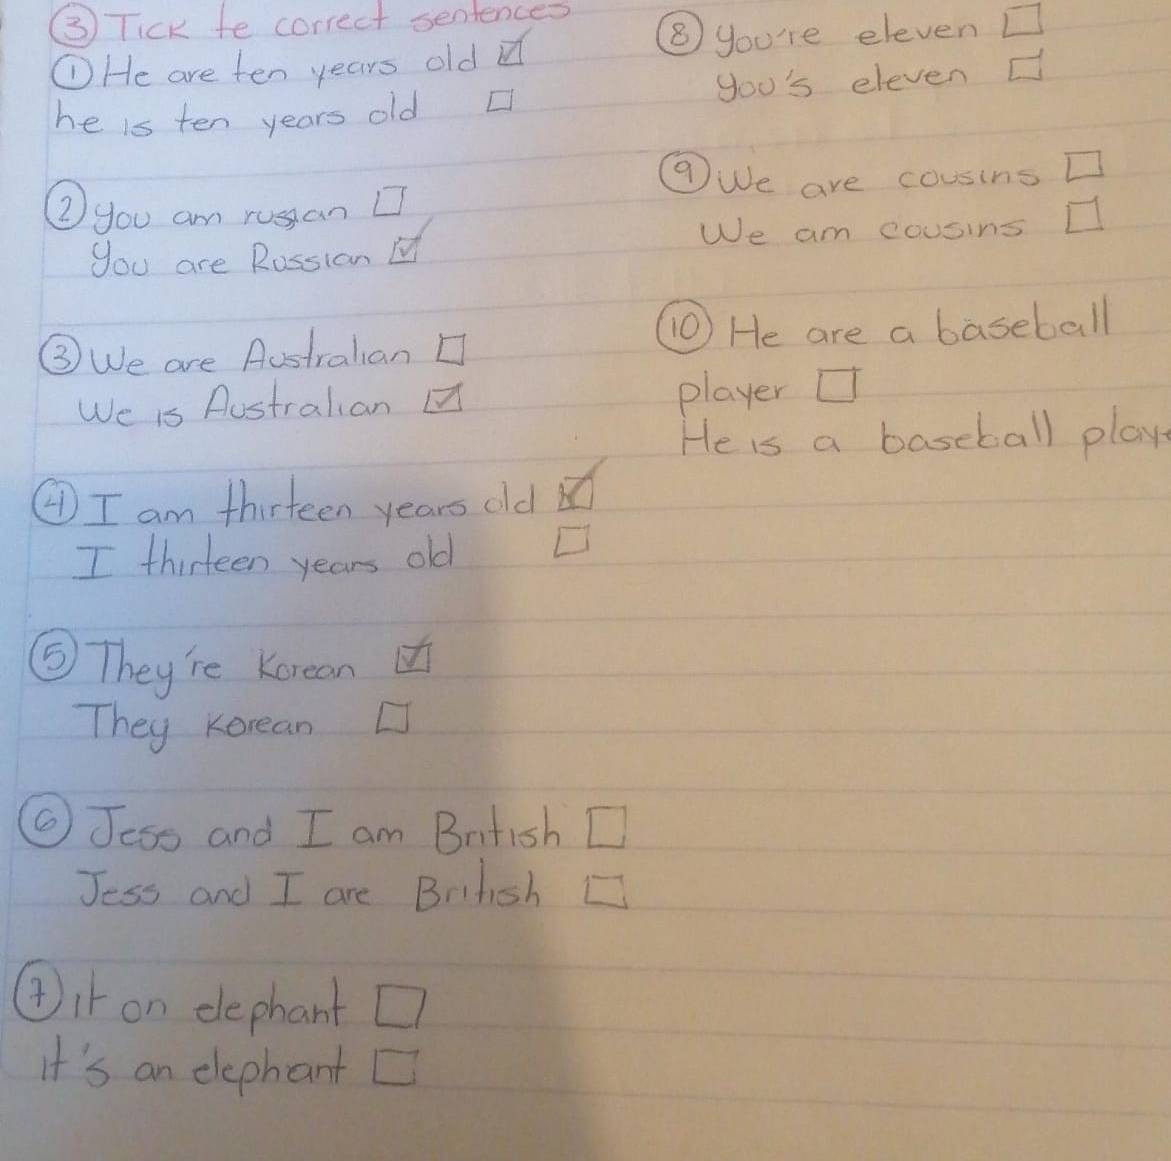 ③ Tick te correct sentences
① He are ten years old ☑
he is ten years old ☐
② you am russian ☐
You are Russian ☑
③ We are Australian ☐
We is Australian ☑
④ I am thirteen years old ☑
I thirteen years old ☐
⑤ They're Korean ☑
They Korean ☐
⑥ Jess and I am British ☐
Jess and I are British ☐
⑦ it on elephant ☐
it's an elephant ☐
⑧ you're eleven ☐
you's eleven ☐
⑨ We are cousins ☐
We am cousins ☐
⑩ He are a baseball
player ☐
He is a baseball playe